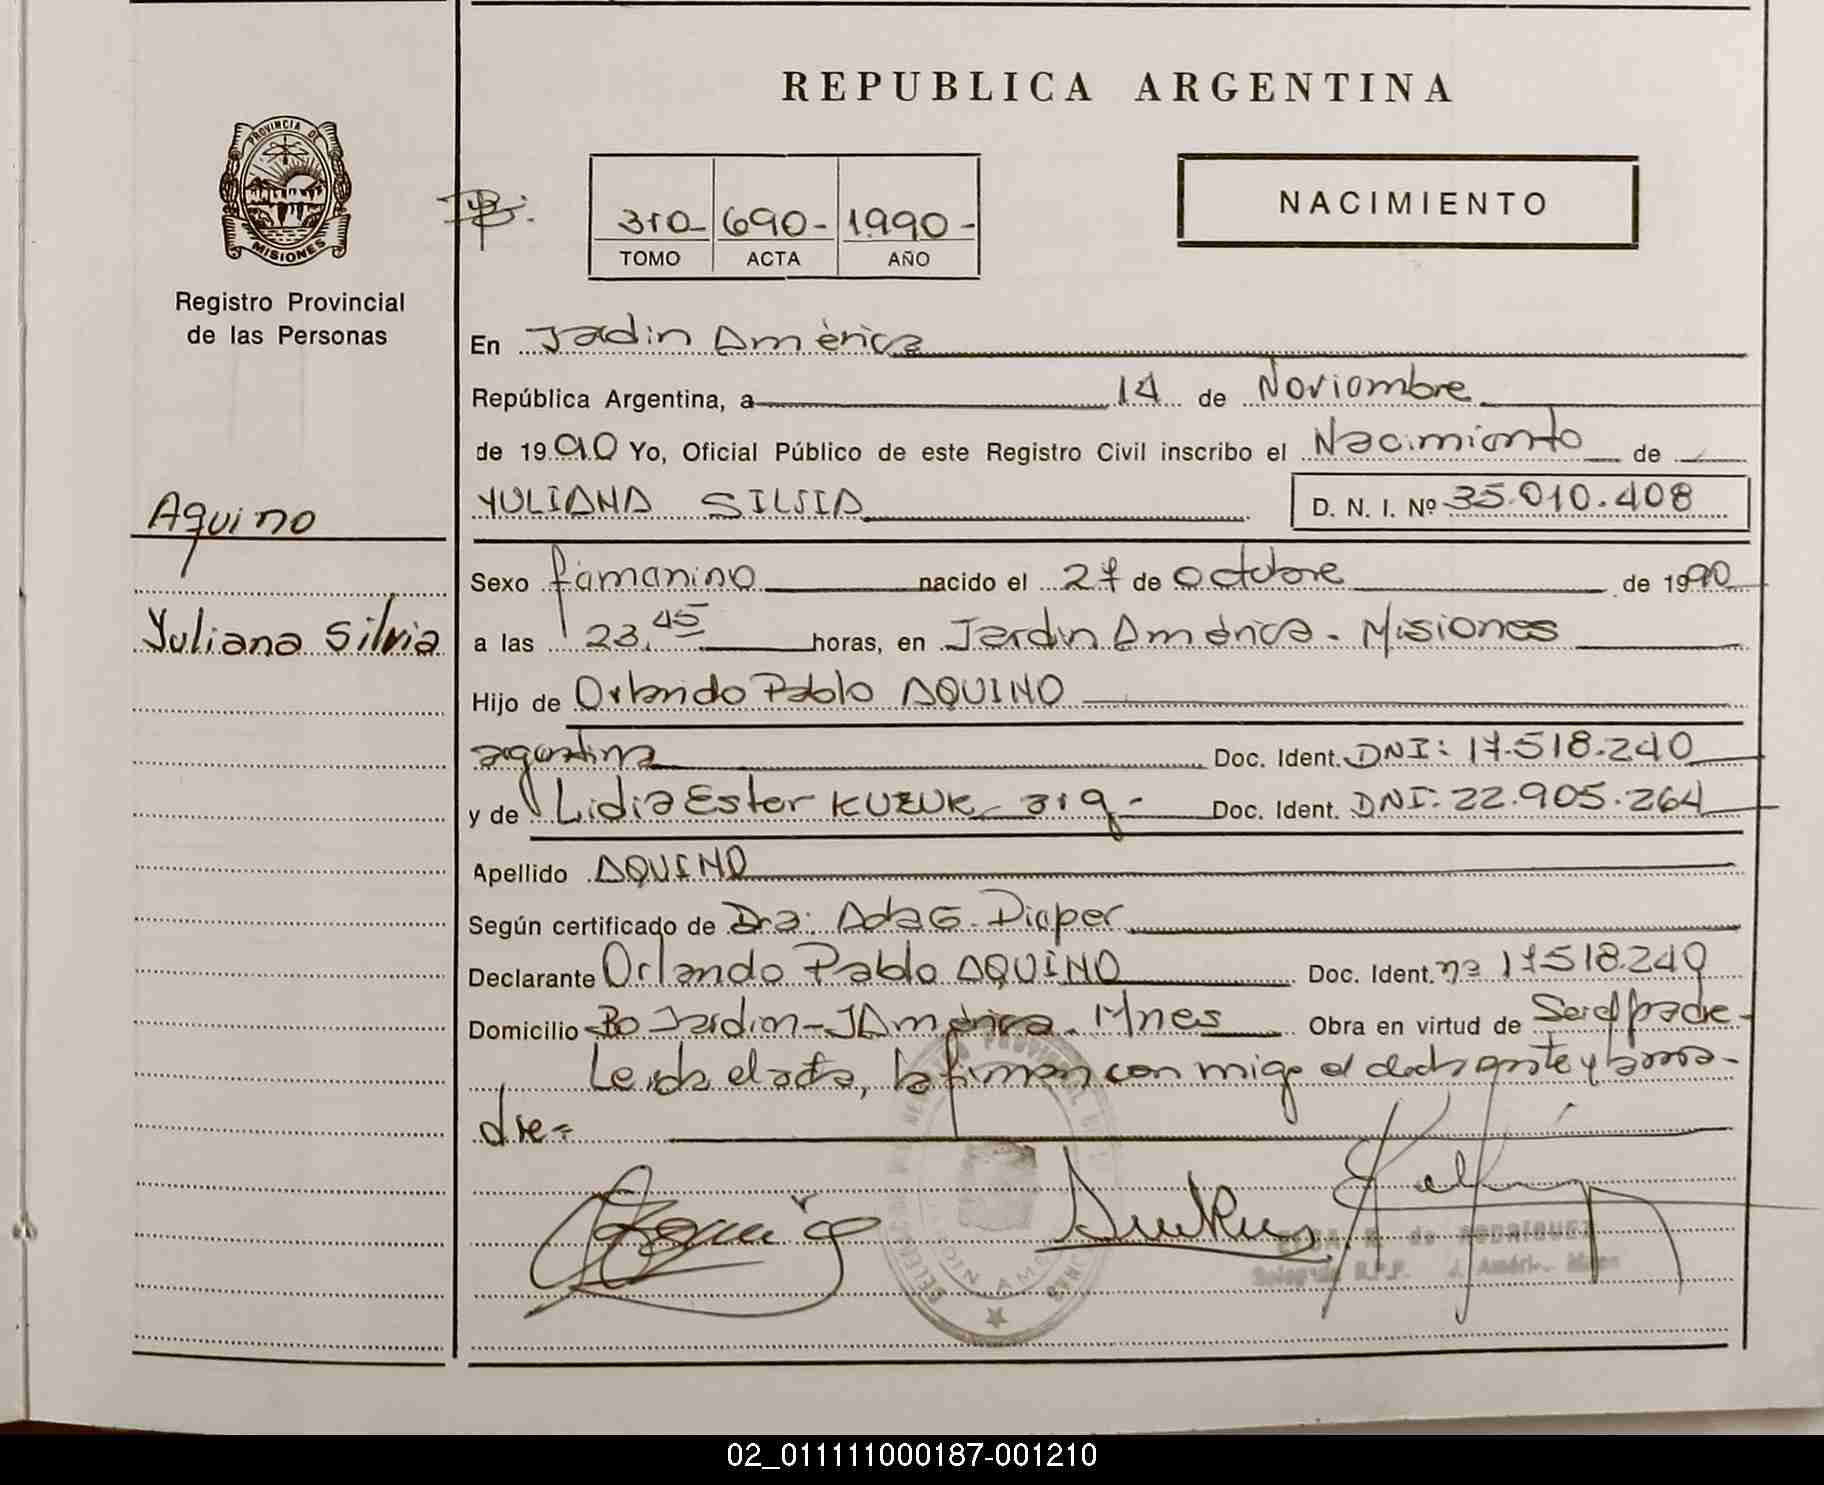 REPUBLICA ARGENTINA
PROVINCIA DE
MISIONES
Registro Provincial
de las Personas
310- 690- 1990-
TOMO ACTA AÑO
NACIMIENTO
En Jadin América
República Argentina, a 14 de Noviembre
de 1990 Yo, Oficial Público de este Registro Civil inscribo el Nacimiento de
YULIANA SILVIA D. N. I. Nº 35.010.408
Aquino
Yuliana Silvia
Sexo femenino nacido el 27 de octubre de 1990
a las 23.45 horas, en Jardin América - Misiones
Hijo de Orlando Pablo AQUINO
argentina Doc. Ident. DNI: 17.518.240
y de Lidia Ester KUZUK - arg - Doc. Ident. DNI: 22.905.264
Apellido AQUINO
Según certificado de Dra: Ada G. Dieper
Declarante Orlando Pablo AQUINO Doc. Ident. nº 17518.240
Domicilio Bo Jardin - J América. Mnes Obra en virtud de Ser el padre -
Leida el acta, la firman con migo el declarante y
dre =
DE RODRÍGUEZ
R.P.P. J. Améri
02_011111000187-001210